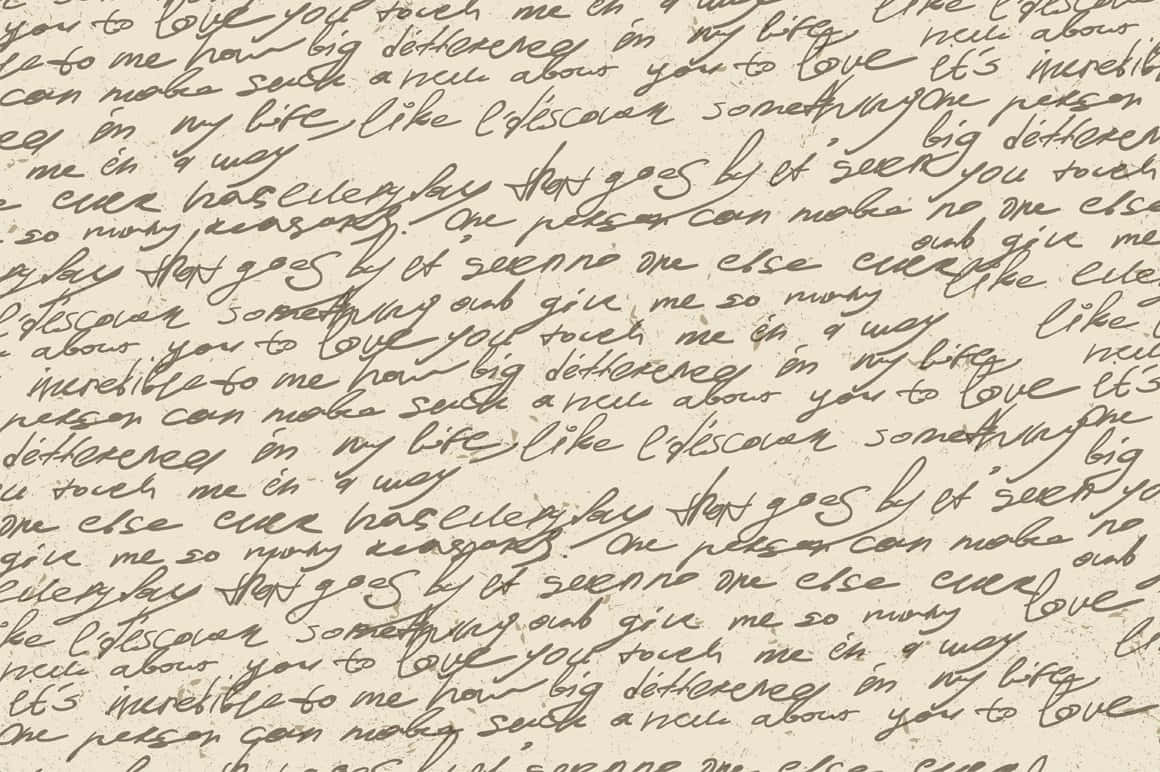 you to love you touch me in a way like I discover
to me how big difference in my life new about
can make such a new about you to love It's incredible
in my life, like I discover something One person
me in a way big difference
ever has every day that goes by it seem you touch
so many reasons. One person can make no one else
and give me
every day that goes by it seem no one else ever like every
I discover something and give me so many like
about you to love you touch me in a way new
incredible to me how big difference in my life
person can make such a new about you to love It's
difference in my life, like I discover something One
touch me in a way big
one else ever has every day that goes by it seem
give me so many reasons. One person can make no
and
every day that goes by it seem no one else ever
like I discover something and give me so many love
new about you to love you touch me in a way
It's incredible to me how big difference in my life
One person can make such a new about you to love